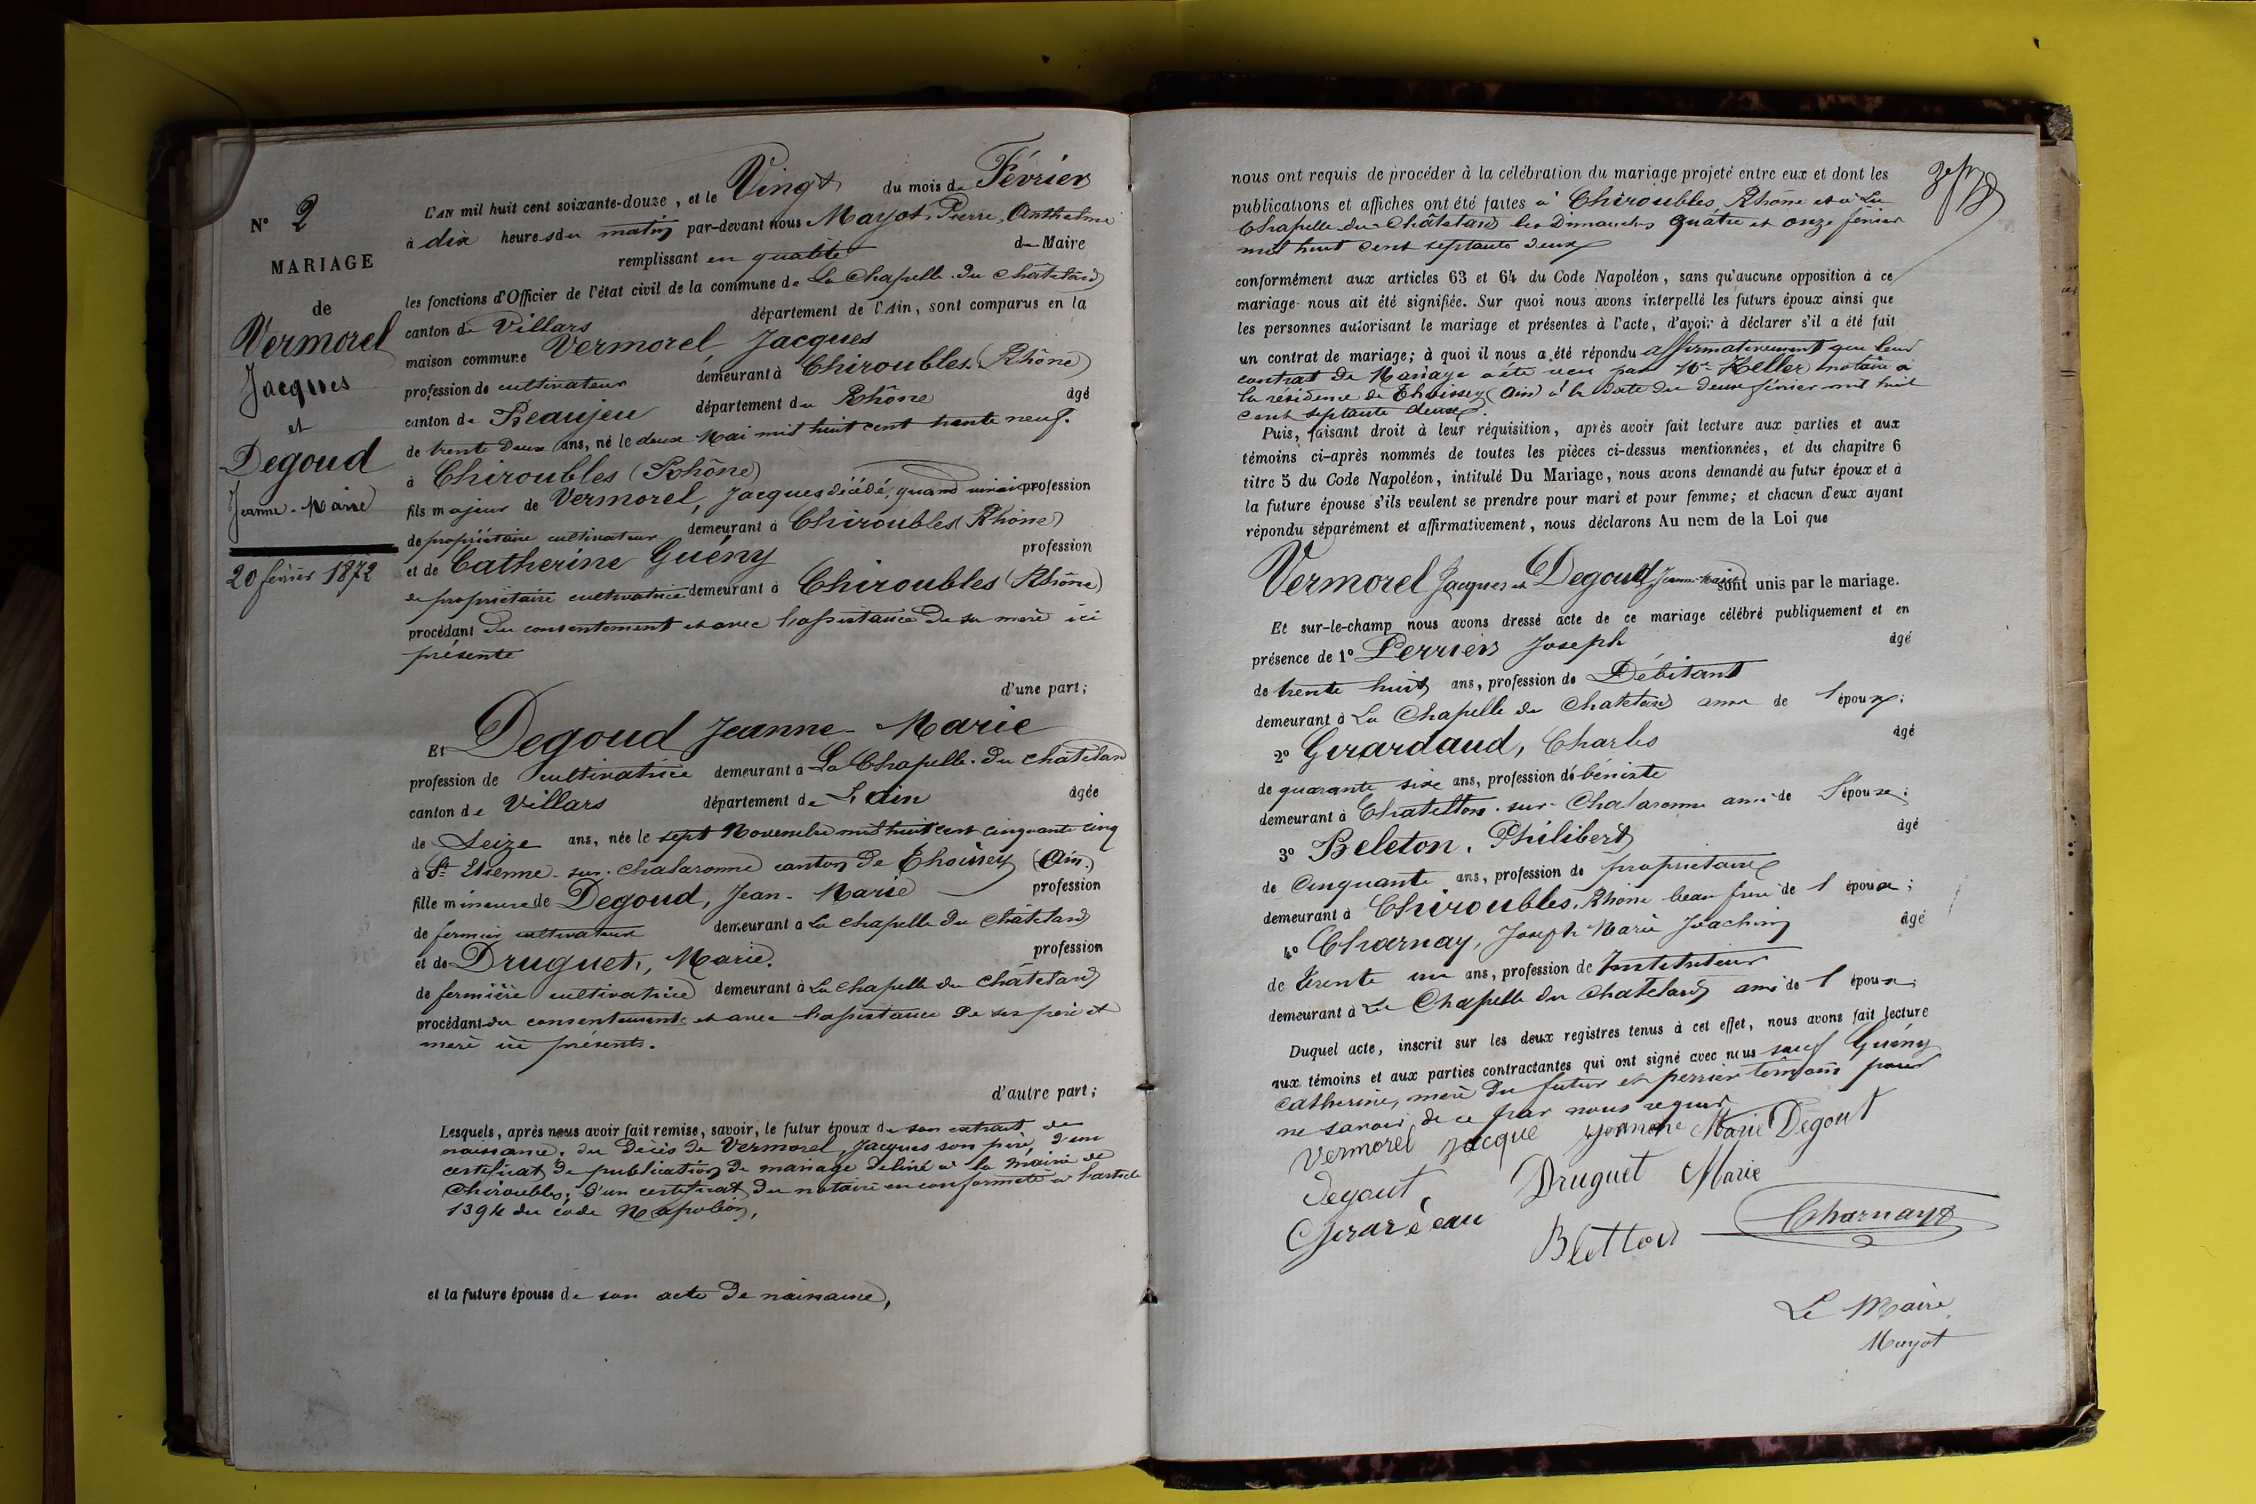 N° 2
MARIAGE
de
Vermorel
Jacques
et
Degoud
Jeanne-Marie
20 février 1872
L'AN mil huit cent soixante-douze, et le Vingt du mois de Février
à dix heures du matin par-devant nous Mayot, Pierre, Anthelme
remplissant en qualité de Maire
les fonctions d'Officier de l'état civil de la commune de La Chapelle-du-Châtelard
canton de Villars département de l'Ain, sont comparus en la
maison commune Vermorel, Jacques
profession de cultivateur demeurant à Chiroubles (Rhône)
canton de Beaujeu département du Rhône âgé
de trente deux ans, né le deux Mai mil huit cent trente neuf.
à Chiroubles (Rhône)
fils majeur de Vermorel, Jacques décédé, quand vivait profession
de propriétaire cultivateur demeurant à Chiroubles (Rhône)
et de Catherine Guény profession
de propriétaire cultivatrice demeurant à Chiroubles (Rhône)
procédant du consentement et avec l'assistance de sa mère ici
présente
d'une part;
Et Degoud Jeanne-Marie
profession de cultivatrice demeurant à La Chapelle-du-Châtelard
canton de Villars département de L'ain âgée
de Seize ans, née le sept Novembre mil huit cent cinquante cinq
à St Etienne-sur-Chalaronne canton de Thoissey (Ain.)
fille mineure de Degoud, Jean-Marie profession
de fermier cultivateur demeurant à La Chapelle du Châtelard
et de Druguet, Marie. profession
de fermière cultivatrice demeurant à La Chapelle du Châtelard
procédant du consentement et avec l'assistance de ses père et
mère ici présents.
d'autre part;
Lesquels, après nous avoir fait remise, savoir, le futur époux de son extrait de
naissance, du décès de Vermorel, Jacques son père, d'un
certificat de publication de mariage délivré à la Mairie de
Chiroubles, d'un certificat du notaire en conformité à l'article
1394 du code Napoléon,
et la future épouse de son acte de naissance,
nous ont requis de procéder à la célébration du mariage projeté entre eux et dont les
publications et affiches ont été faites à Chiroubles, Rhône et à La
Chapelle du Châtelard les Dimanches quatre et onze février
mil huit cent septante deux
conformément aux articles 63 et 64 du Code Napoléon, sans qu'aucune opposition à ce
mariage nous ait été signifiée. Sur quoi nous avons interpellé les futurs époux ainsi que
les personnes autorisant le mariage et présentes à l'acte, d'avoir à déclarer s'il a été fait
un contrat de mariage; à quoi il nous a été répondu affirmativement que leur
contrat de Mariage a été reçu par Me Keller notaire à
la résidence de Thoissey (Ain) à la date du deux février mil huit
cent septante deux.
Puis, faisant droit à leur réquisition, après avoir fait lecture aux parties et aux
témoins ci-après nommés de toutes les pièces ci-dessus mentionnées, et du chapitre 6
titre 5 du Code Napoléon, intitulé Du Mariage, nous avons demandé au futur époux et à
la future épouse s'ils veulent se prendre pour mari et pour femme; et chacun d'eux ayant
répondu séparément et affirmativement, nous déclarons Au nom de la Loi que
Vermorel Jacques et Degoud Jeanne-Marie sont unis par le mariage.
Et sur-le-champ nous avons dressé acte de ce mariage célébré publiquement et en
présence de 1° Perrier Joseph âgé
de trente huit ans, profession de Débitant
demeurant à La Chapelle du Chatelard ami de l'époux;
2° Girardaud, Charles âgé
de quarante six ans, profession d'ébéniste
demeurant à Chatillon-sur-Chalaronne ami de l'épouse;
3° Beleton, Philibert âgé
de Cinquante ans, profession de propriétaire
demeurant à Chiroubles, Rhône beau frère de l'époux;
4° Charnay, Joseph Marie Joachim âgé
de Trente un ans, profession de Instituteur
demeurant à La Chapelle du Chatelard ami de l'époux;
Duquel acte, inscrit sur les deux registres tenus à cet effet, nous avons fait lecture
aux témoins et aux parties contractantes qui ont signé avec nous sauf Guény
Catherine, mère du futur et perrier témoin pour
ne savoir de ce par nous requis
Vermorel Jacque Marie Degout
Degout, Druguet Marie
Bletton Charnay
Le Maire
Mayot